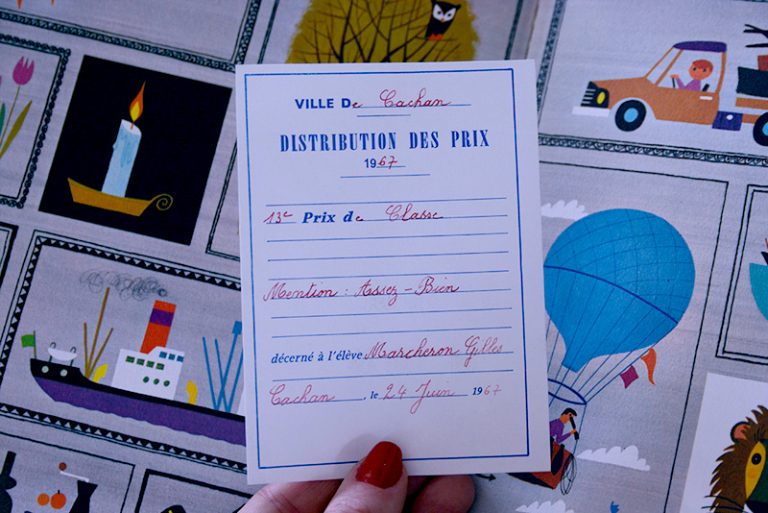 VILLE De Cachan
DISTRIBUTION DES PRIX
1967
13e Prix de Classe
Mention : Assez-Bien
décerné à l'élève Marcheron Gilles
Cachan, le 24 Juin 1967